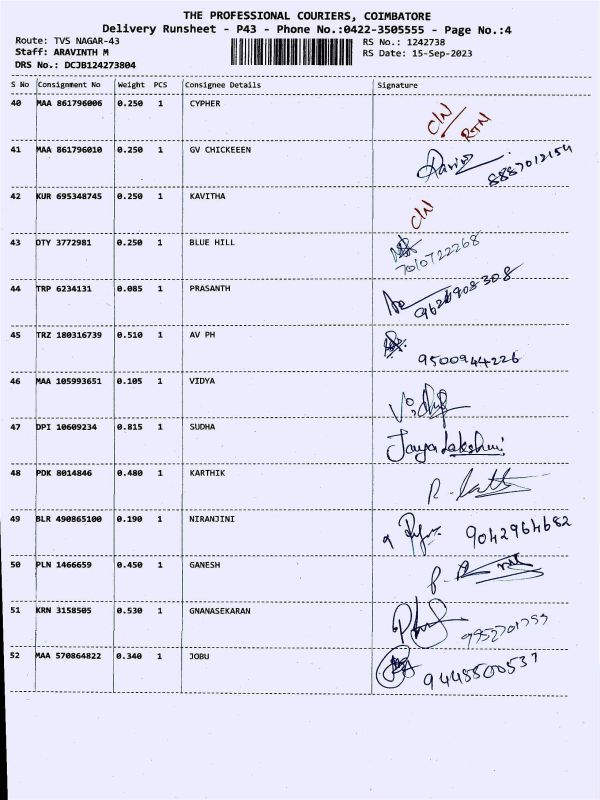 THE PROFESSIONAL COURIERS, COIMBATORE
Delivery Runsheet - P43 - Phone No.:0422-3505555 - Page No.:4
Route: TVS NAGAR-43 RS No.: 1242738
Staff: ARAVINTH M RS Date: 15-Sep-2023
DRS No.: DCJB124273804
S No Consignment No Weight PCS Consignee Details Signature
40 MAA 861796006 0.250 1 CYPHER C/N RTN
41 MAA 861796010 0.250 1 GV CHICKEEEN 8887012154
42 KUR 695348745 0.250 1 KAVITHA C/N
43 OTY 3772981 0.250 1 BLUE HILL 7010722268
44 TRP 6234131 0.085 1 PRASANTH 9626908308
45 TRZ 180316739 0.510 1 AV PH 9500944226
46 MAA 105993651 0.105 1 VIDYA
47 DPI 10609234 0.815 1 SUDHA Jayalakshmi
48 PDK 8014846 0.480 1 KARTHIK
49 BLR 490865100 0.190 1 NIRANJINI 9042964682
50 PLN 1466659 0.450 1 GANESH
51 KRN 3158505 0.530 1 GNANASEKARAN
52 MAA 570864822 0.340 1 JOBU 9448500537